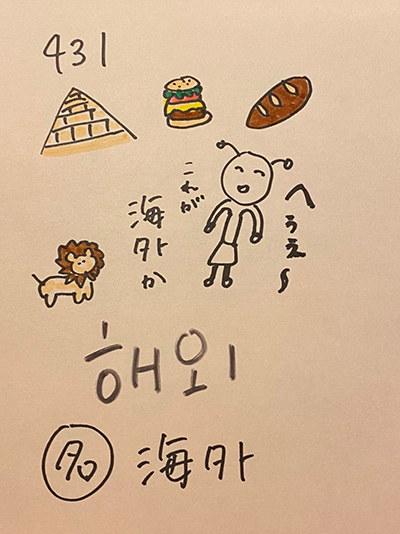 431
へぅえ〜
これが
海外か
해외
名 海外